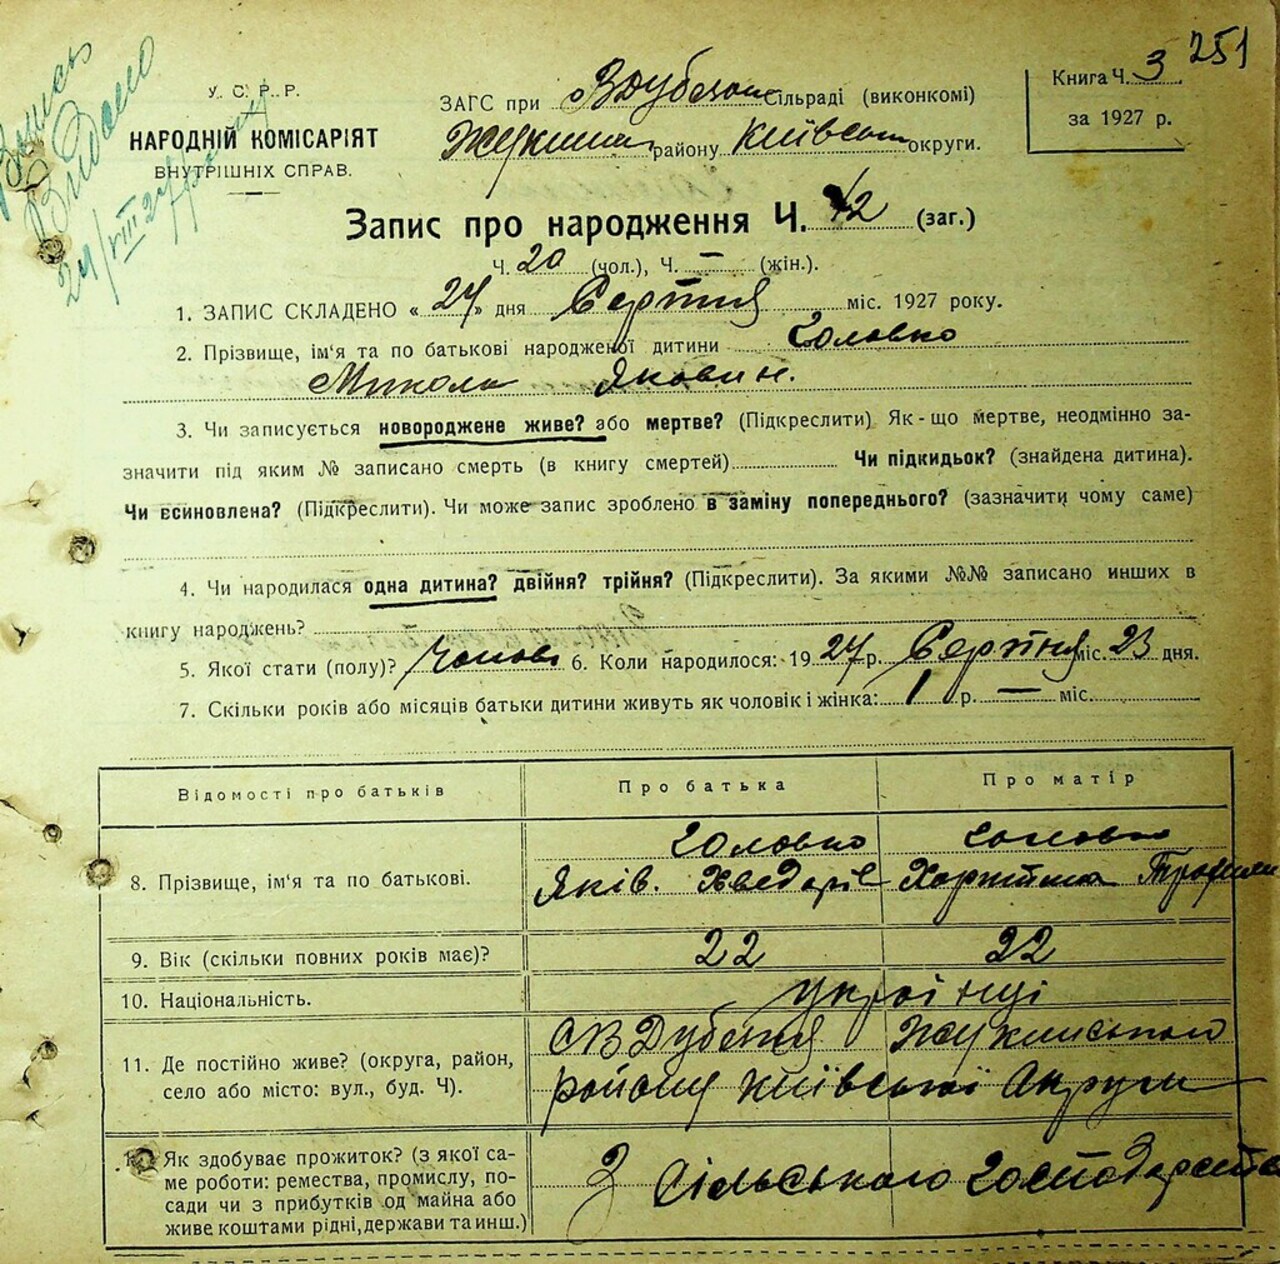 251
Запись
Видано
У. С. Р. Р.
НАРОДНІЙ КОМІСАРІЯТ
ВНУТРІШНІХ СПРАВ.
ЗАГС при Сільраді (виконкомі)
району Київськ округи.
Книга Ч. 3
за 1927 р.
Запис про народження Ч. 42 (заг.)
Ч. 20 (чол.), Ч. — (жін.).
1. ЗАПИС СКЛАДЕНО « 27 » дня Серпня міс. 1927 року.
2. Прізвище, ім'я та по батькові народженої дитини Головко
Микола Яковин.
3. Чи записується новороджене живе? або мертве? (Підкреслити) Як-що мертве, неодмінно за-
значити під яким № записано смерть (в книгу смертей) Чи підкидьок? (знайдена дитина).
Чи всиновлена? (Підкреслити). Чи може запис зроблено в заміну попереднього? (зазначити чому саме)
4. Чи народилася одна дитина? двійня? трійня? (Підкреслити). За якими №№ записано инших в
книгу народжень?
5. Якої стати (полу)? 6. Коли народилося: 1927 р. Серпня міс. 23 дня.
7. Скільки років або місяців батьки дитини живуть як чоловік і жінка: 1 р. — міс.
Відомості про батьків
Про батька
Про матір
8. Прізвище, ім'я та по батькові.
Головко
Яків. Хведорів
Головко
9. Вік (скільки повних років має)?
22
22
10. Національність.
українці
11. Де постійно живе? (округа, район,
село або місто: вул., буд. Ч).
району Київської Округи
Як здобуває прожиток? (з якої са-
ме роботи: ремества, промислу, по-
сади чи з прибутків од майна або
живе коштами рідні, держави та инш.)
З Сільського Господарства